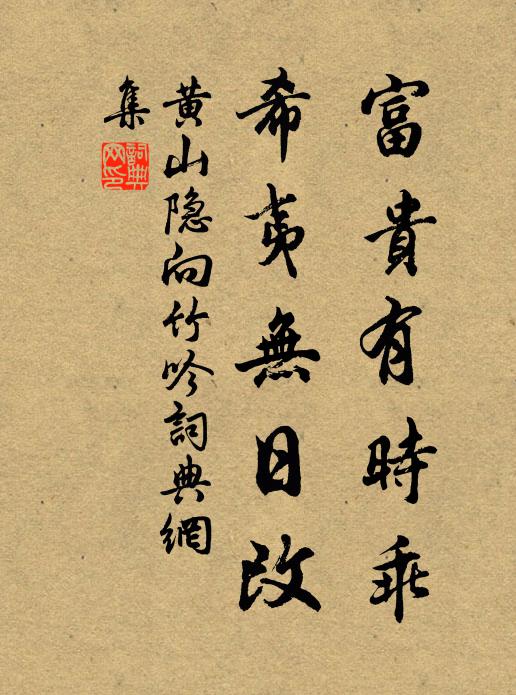 富貴有時乖
希夷無日改
黄山隐向竹吟詞典網
集
詞典網印